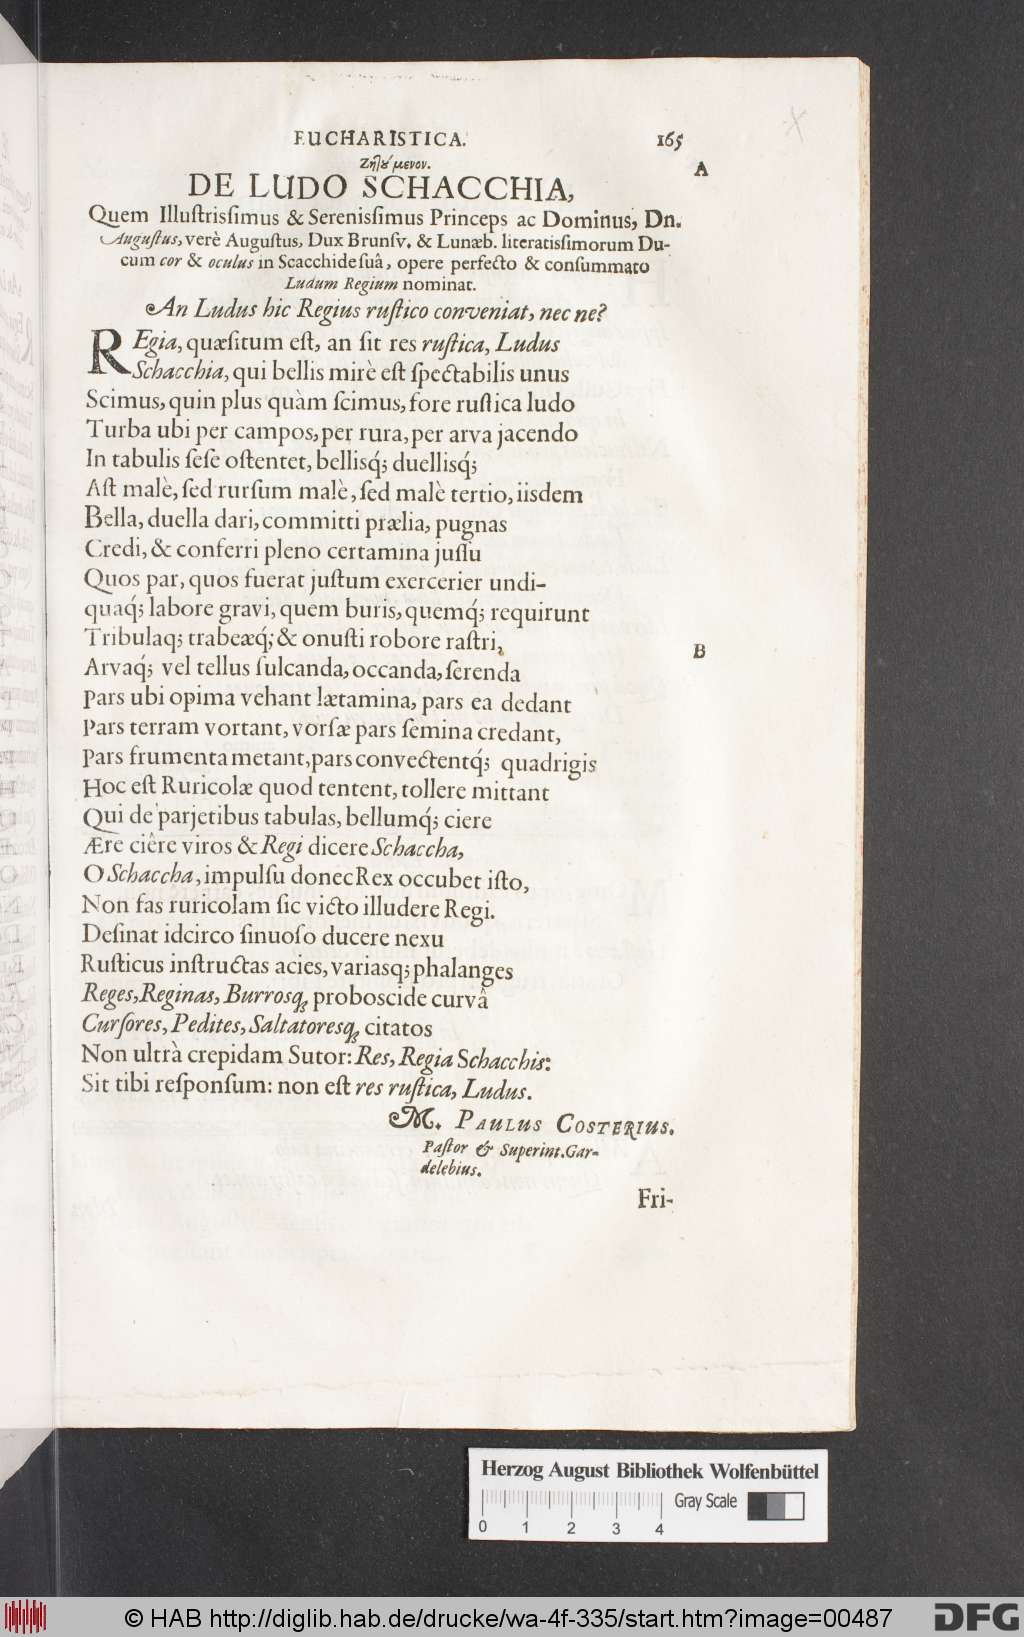 EUCHARISTICA. 165
Ζηλȣ́μενον.
A
DE LUDO SCHACCHIA,
Quem Illuſtrisſimus & Serenisſimus Princeps ac Dominus, Dn.
Auguſtus, verè Auguſtus, Dux Brunſv. & Lunæb. literatisſimorum Du-
cum cor & oculus in Scacchide ſuâ, opere perfecto & conſummato
Ludum Regium nominat.
An Ludus hic Regius ruſtico conveniat, nec ne?
REgia, quæſitum eſt, an ſit res ruſtica, Ludus
Schacchia, qui bellis mirè eſt ſpectabilis unus
Scimus, quin plus quàm ſcimus, fore ruſtica ludo
Turba ubi per campos, per rura, per arva jacendo
In tabulis ſeſe oſtentet, bellisq́; duellisq́;
Aſt malè, ſed rurſum malè, ſed malè tertio, iisdem
Bella, duella dari, committi prælia, pugnas
Credi, & conferri pleno certamina juſſu
Quos par, quos fuerat juſtum exercerier undi-
quaq́; labore gravi, quem buris, quemq́; requirunt
Tribulaq; trabeæq́; & onuſti robore raſtri,
B
Arvaq́; vel tellus ſulcanda, occanda, ſerenda
Pars ubi opima vehant lætamina, pars ea dedant
Pars terram vortant, vorſæ pars ſemina credant,
Pars frumenta metant, pars convectentq́; quadrigis
Hoc eſt Ruricolæ quod tentent, tollere mittant
Qui de parjetibus tabulas, bellumq́; ciere
Ære ciêre viros & Regi dicere Schaccha,
O Schaccha, impulſu donec Rex occubet iſto,
Non fas ruricolam ſic victo illudere Regi.
Deſinat idcirco ſinuoſo ducere nexu
Ruſticus inſtructas acies, variasq; phalanges
Reges, Reginas, Burrosq; proboscide curvâ
Curſores, Pedites, Saltatoresq; citatos
Non ultrà crepidam Sutor: Res, Regia Schacchis:
Sit tibi reſponſum: non eſt res ruſtica, Ludus.
M. PAULUS COSTERIUS.
Paſtor & Superint. Gar-
delebius.
Fri-
Herzog August Bibliothek Wolfenbüttel
Gray Scale
0 1 2 3 4
© HAB http://diglib.hab.de/drucke/wa-4f-335/start.htm?image=00487
DFG